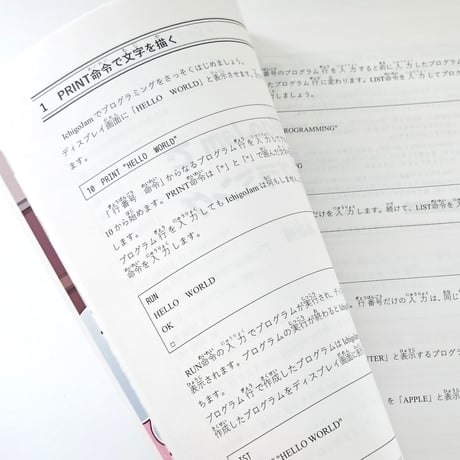 1 PRINT命令で文字を描く
IchigoJamでプログラミングをさっそくはじめましょう。
ディスプレイ画面に「HELLO WORLD」と表示させます。
ます。
10 PRINT "HELLO WORLD"
「行番号 命令」からなるプログラム行を入力して
10から始めます。PRINT命令は「"」と「"」で囲んだ
します。
プログラム行を入力してもIchigoJamは何もしませ
命令を入力します。
RUN
HELLO WORLD
OK
□
RUN命令の入力でプログラムが実行され、デ
表示されます。プログラムの実行が終わるとIchig
ちます。
プログラム行で作成したプログラムはIchigo
作成したプログラムをディスプレイ画面に
IST
"HELLO WORLD"
番号のプログラム行を入力すると前に入力したプログラム
に変わります。LIST命令を入力してプロ
しましょう。
ROGRAMMING"
だけを入力します。続けて、LIST命令
行番号だけの入力は、同じ
TER」と表示するプログラ
を「APPLE」と表示